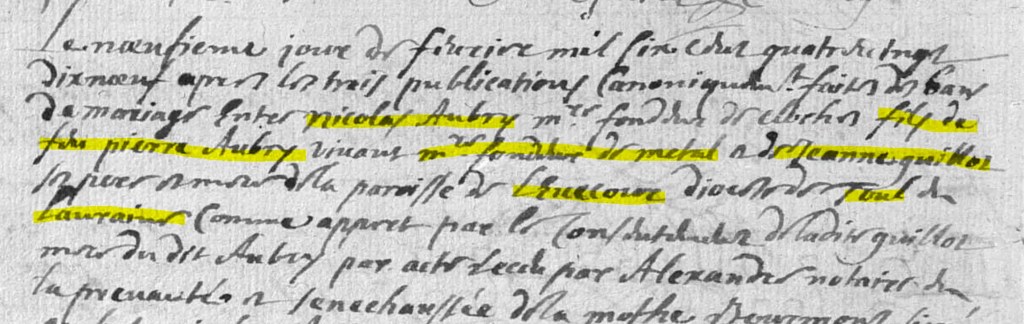 Le nœufieme jour de feuvrier mil six cent quatre vingt
dix nœuf apres les trois publications Canoniquem.t faites des bans
de mariage Entre nicolas Aubry m.re fondeur de cloches fils de
feu pierre Aubry vivant m.re fondeur de metal et de Jeanne guillot
ses pere et mere de la paroisse de diocese de Toul en
Lauraine Comme appert par le Consentement de ladite guillot
mere du dit Aubry par acte Receu par Alexandre notaire en
la prevauté et senechaussée de la mothe et Bourmont